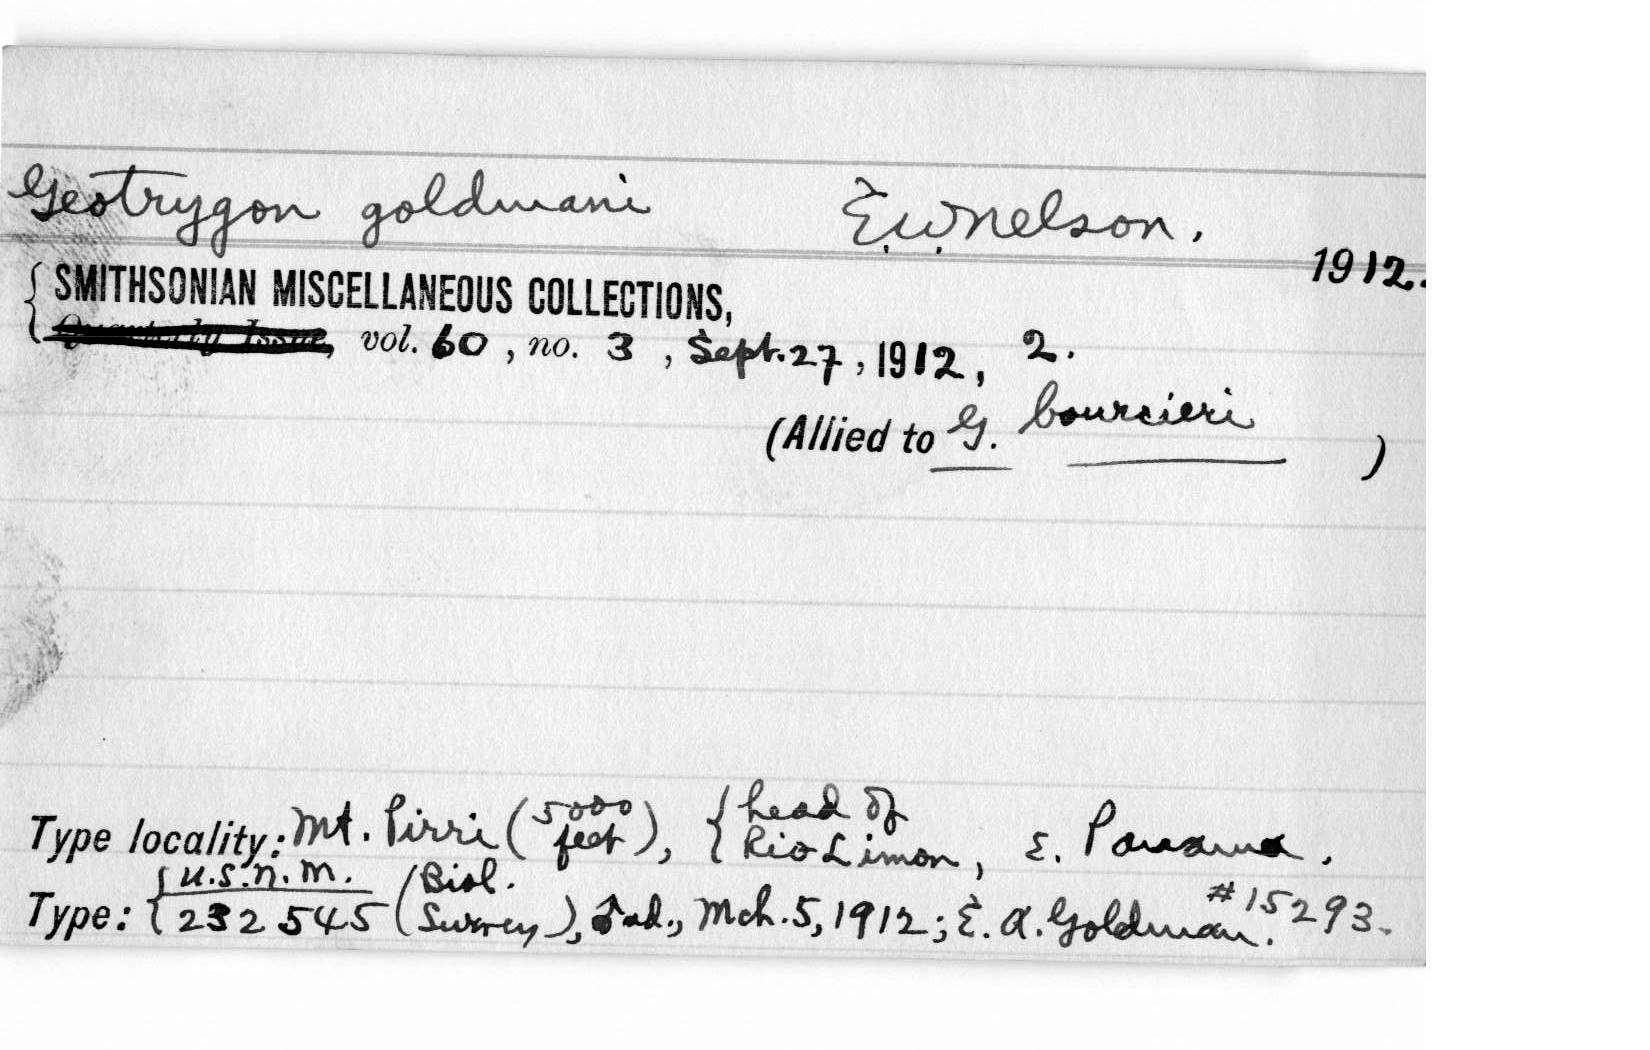 Geotrygon goldmani E.W. Nelson.
1912.
{ SMITHSONIAN MISCELLANEOUS COLLECTIONS,
Quarterly Issue, vol. 60, no. 3, Sept. 27, 1912, 2.
(Allied to G. bourcieri )
Type locality: Mt. Pirri (5000 feet), { head of Rio Limon, E. Panama.
Type: { U.S.N.M. 232545 (Biol. Survey), ♂ ad., Mch. 5, 1912; E. A. Goldman. #15293.